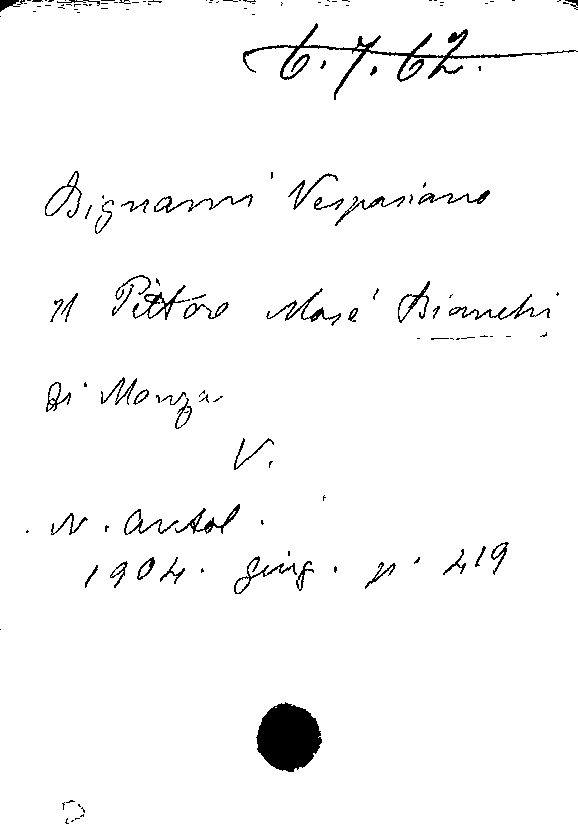 6.7.62.
Bignami Vespasiano
Il Pittore Mosè Bianchi
di Monza
V.
N. Antol.
1904. giug. p. 419